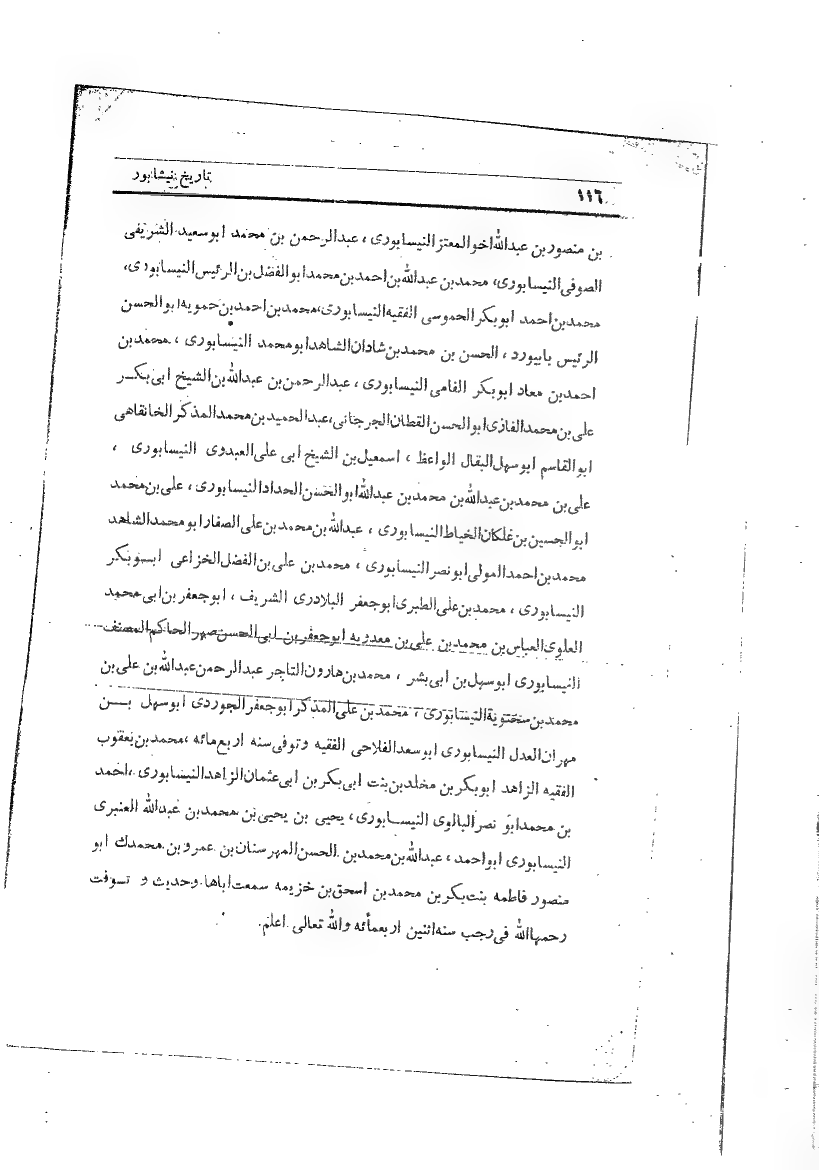 ١١٦
تاریخ نیشابور
بن منصور بن عبدالله اخو المعتز النیسابوری ، عبدالرحمن بن محمد ابو سعید الشریفی
الصوفی النیسابوری، محمد بن عبدالله بن احمد بن محمد ابو الفضل بن الرئیس النیسابوری،
محمد بن احمد ابو بکر الحموسی الفقیه النیسابوری، محمد بن احمد بن حمویه ابو الحسن
الرئیس بابیورد ، الحسن بن محمد بن شاذان الشاهد ابو محمد النیسابوری ، محمد بن
احمد بن معاد ابو بکر الفامی النیسابوری ، عبدالرحمن بن عبدالله بن الشیخ ابی بکـر
علی بن محمد الغازی ابو الحسن القطان الجرجانی، عبدالحمید بن محمد المذکر الخانقاهی
ابو القاسم ابو سهل البقال الواعظ ، اسمعیل بن الشیخ ابی علی العبدوی النیسابوری ،
علی بن محمد بن عبدالله بن محمد بن عبدالله ابو الحسن الحداد النیسابوری ، علی بن محمد
ابو الحسین بن علکان الخیاط النیسابوری ، عبدالله بن محمد بن علی الصفار ابو محمد الشاهد
محمد بن احمد المولی ابو نصر النیسابوری ، محمد بن علی بن الفضل الخزاعی ابـو بکر
النیسابوری ، محمد بن علی الطبری ابو جعفر البلادری الشریف ، ابو جعفر بن ابی محمد
العلوی العباس بن محمد بن علی بن معدویه ابو جعفر بن ابی الحسن صهر الحاکم المصنف
النیسابوری ابو سهل بن ابی بشر ، محمد بن هارون التاجر عبدالرحمن عبدالله بن علی بن
محمد بن سختویة النیسابوری ، محمد بن علی المذکر ابو جعفر الجوردی ابو سهل بـن
مهران العدل النیسابوری ابو سعد الفلاحی الفقیه و توفی سنه اربع مائه ، محمد بن یعقوب
الفقیه الزاهد ابو بکر بن مخلد بن بنت ابی بکر بن ابی عثمان الزاهد النیسابوری ، احمد
بن محمد ابو نصر البالوی النیسـابوری، یحیی بن یحیی بن محمد بن عبدالله العنبری
النیسابوری ابو احمد ، عبدالله بن محمد بن الحسن المهرستان بن عمرو بن محمدك ابو
منصور فاطمه بنت بکر بن محمد بن اسحق بن خزیمه سمعت اباها وحدیث و تـوفت
رحمها الله فی رجب سنه اثنین اربعمأئه والله تعالی اعلم.